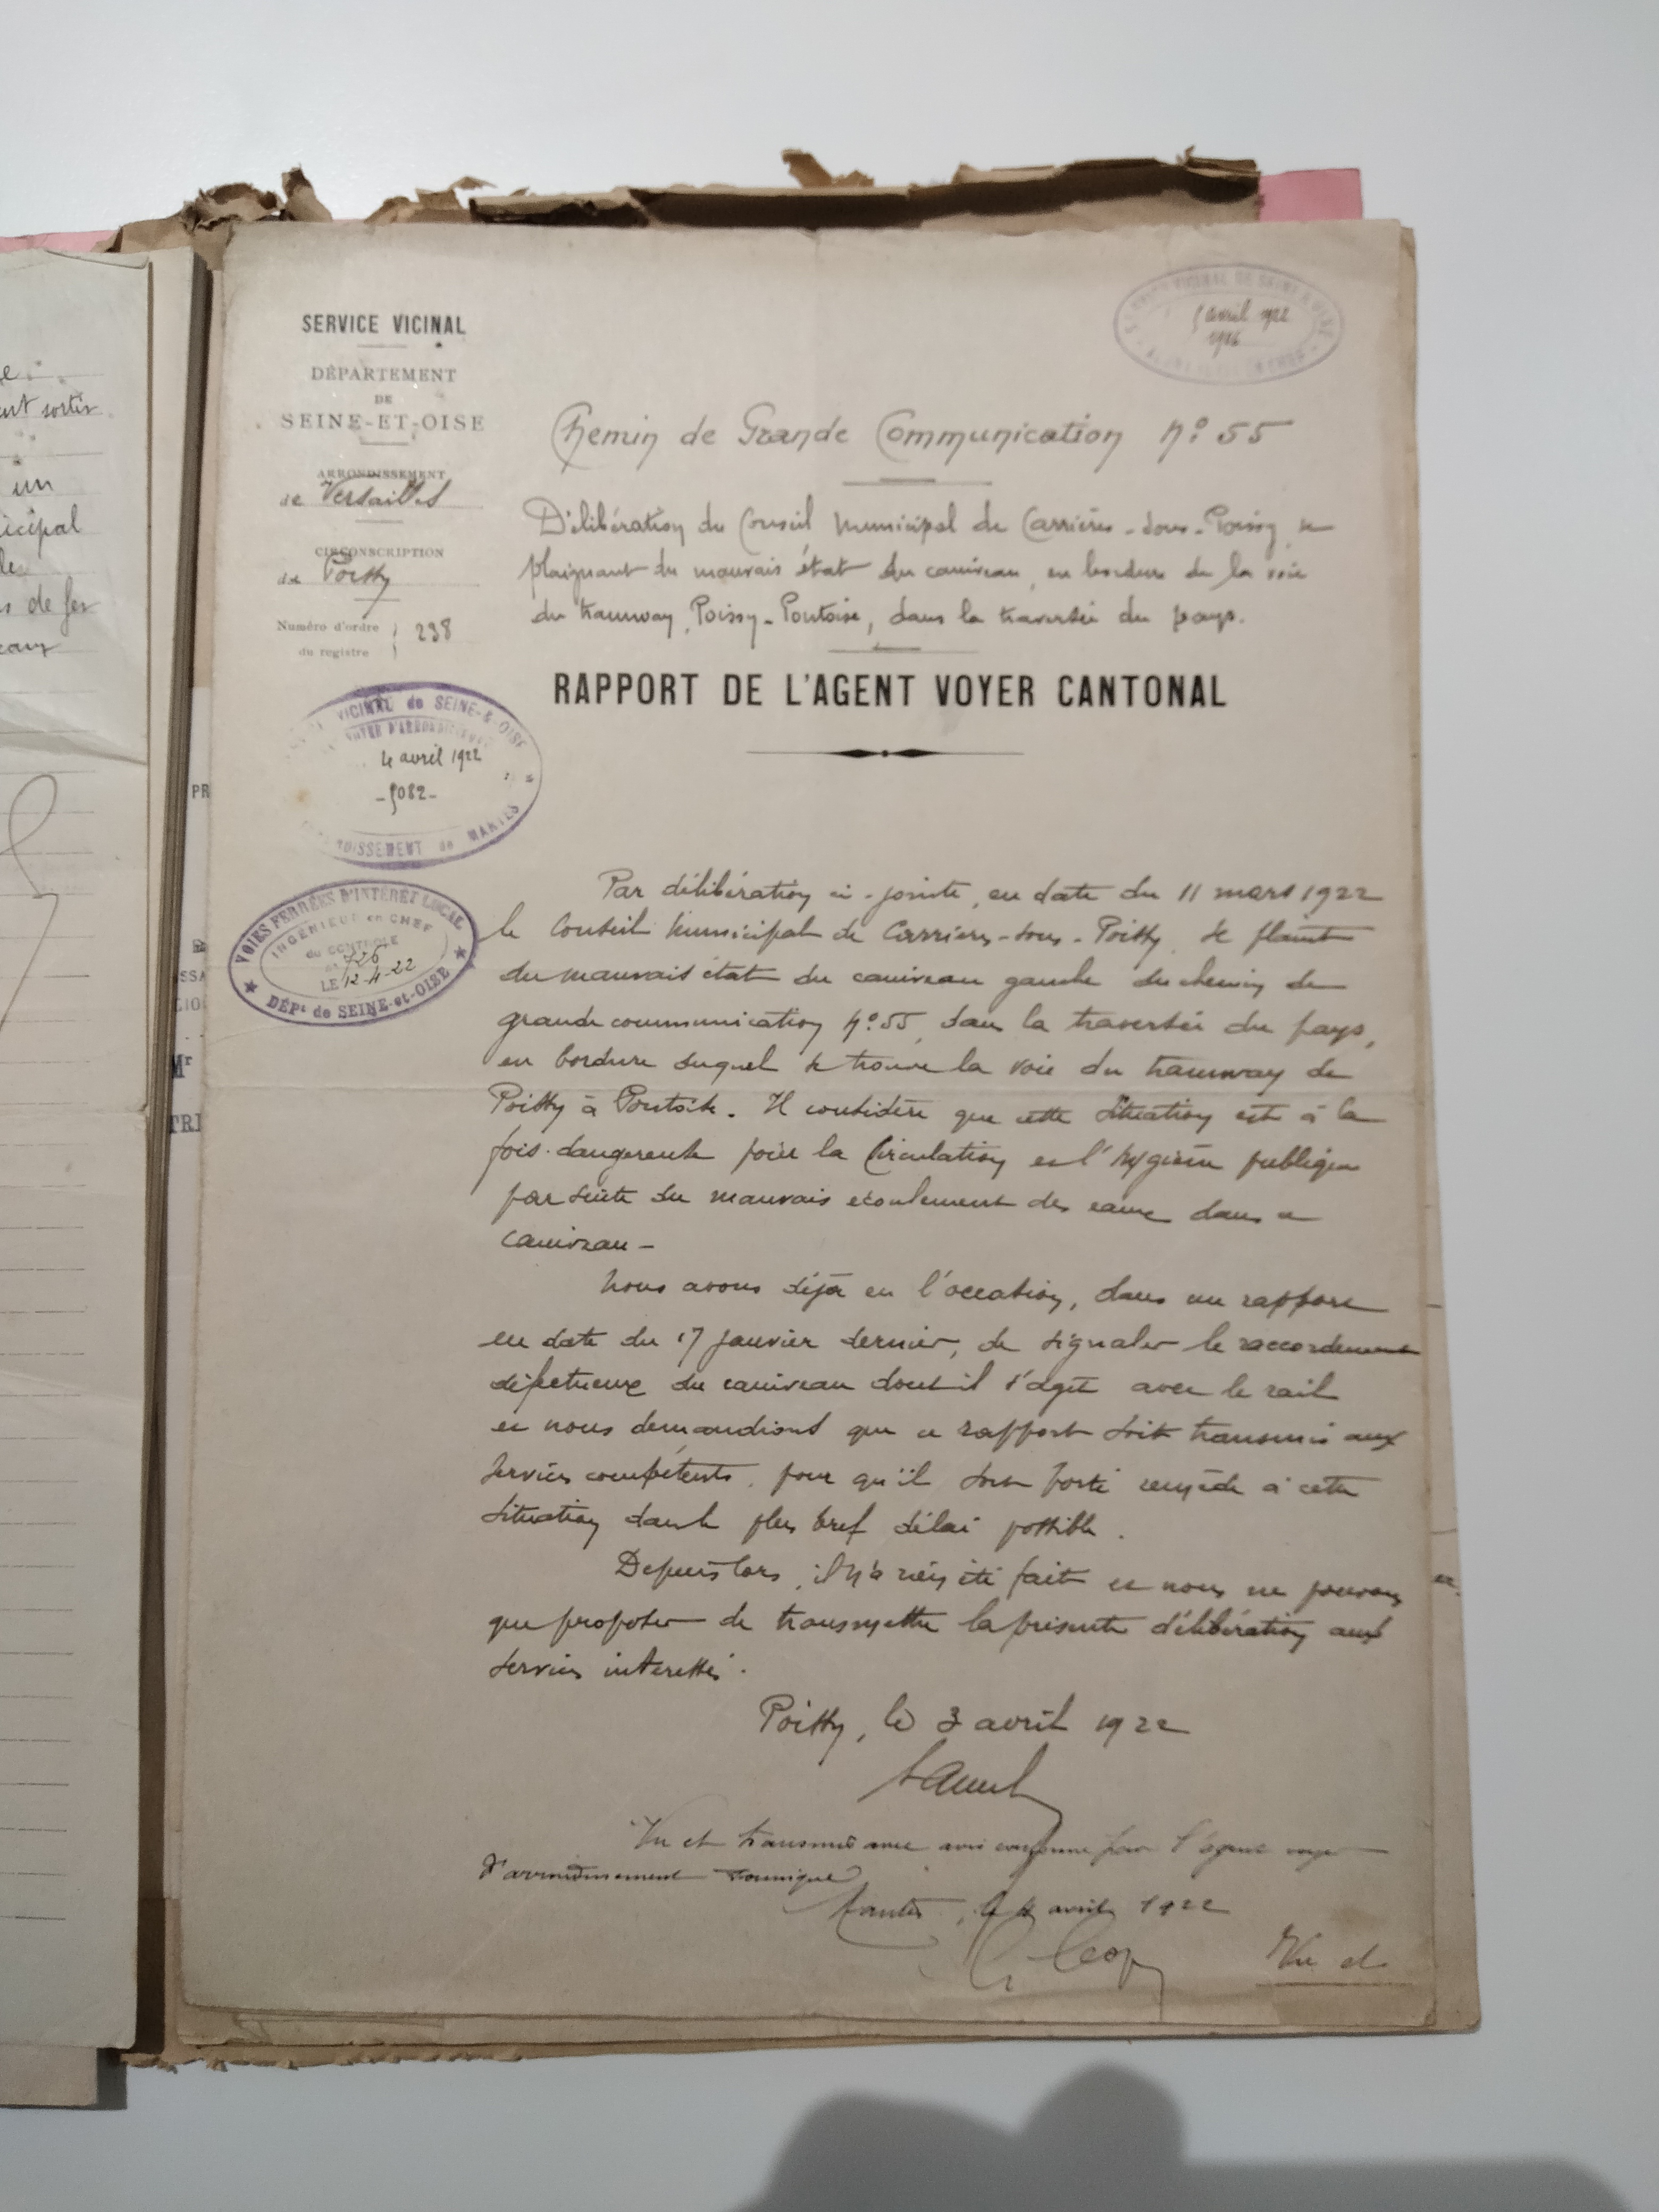 SERVICE VICINAL
DÉPARTEMENT
DE
SEINE-ET-OISE
ARRONDISSEMENT
de Versailles
CIRCONSCRIPTION
de Poissy
Numéro d'ordre
du registre
238
5 avril 1922
Chemin de Grande Communication N° 55
Délibération du Conseil Municipal de Carrières-sous-Poissy se
plaignant du mauvais état du caniveau, en bordure de la voie
du tramway Poissy-Pontoise, dans la traversée du pays.
RAPPORT DE L'AGENT VOYER CANTONAL
VICINAL de SEINE-&-OISE
VOYER D'ARRONDISSEMENT
4 avril 1922
-5082-
de MANTES
VOIES FERRÉES D'INTÉRÊT LOCAL
INGÉNIEUR en CHEF
du CONTROLE
726
LE 12-4-22
DÉPt de SEINE-et-OISE
Par délibération ci-jointe, en date du 11 mars 1922
le Conseil Municipal de Carrières-sous-Poissy se plaint
du mauvais état du caniveau gauche du chemin de
grande communication N° 55, dans la traversée du pays,
en bordure duquel se trouve la voie du tramway de
Poissy à Pontoise. Il considère que cette situation est à la
fois dangereuse pour la circulation et l'hygiène publique
par suite du mauvais écoulement des eaux dans ce
caniveau -
Nous avons déjà eu l'occasion, dans un rapport
en date du 17 janvier dernier, de signaler le raccordement
défectueux du caniveau dont il s'agit avec le rail
et nous demandions que ce rapport soit transmis aux
services compétents, pour qu'il soit porté remède à cette
situation dans le plus bref délai possible.
Depuis lors, il n'a rien été fait et nous ne pouvons
que proposer de transmettre la présente délibération aux
services intéressés.
Poissy, le 3 avril 1922
Vu et transmis avec avis conforme par l'agent voyer
d'arrondissement soussigné
Mantes, le 4 avril 1922
Vu et